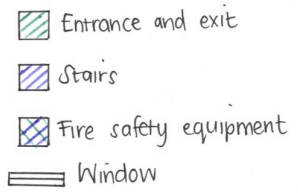 Entrance and exit
Stairs
Fire safety equipment
Window